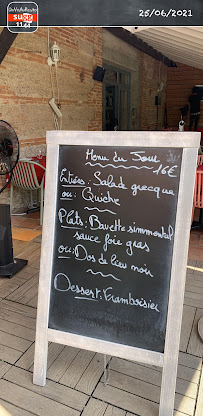 25/06/2021
Menu du Jour
16€
Entrées: Salade grecque
ou: Quiche
Plats: Bavette simmental
sauce foie gras
ou: Dos de lieu noir
Dessert: Framboisier